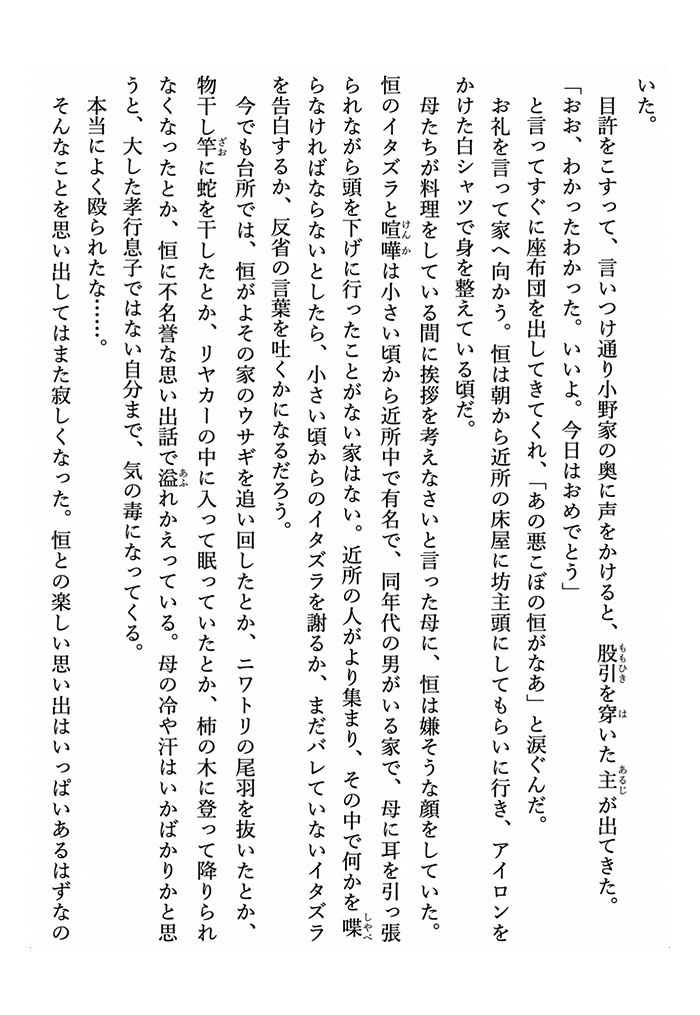 いた。
　目許をこすって、言いつけ通り小野家の奥に声をかけると、股引を穿いた主が出てきた。
「おお、わかったわかった。いいよ。今日はおめでとう」
　と言ってすぐに座布団を出してきてくれ、「あの悪こぼの恒がなあ」と涙ぐんだ。
　お礼を言って家へ向かう。恒は朝から近所の床屋に坊主頭にしてもらいに行き、アイロンを
かけた白シャツで身を整えている頃だ。
　母たちが料理をしている間に挨拶を考えなさいと言った母に、恒は嫌そうな顔をしていた。
恒のイタズラと喧嘩は小さい頃から近所中で有名で、同年代の男がいる家で、母に耳を引っ張
られながら頭を下げに行ったことがない家はない。近所の人がより集まり、その中で何かを喋
らなければならないとしたら、小さい頃からのイタズラを謝るか、まだバレていないイタズラ
を告白するか、反省の言葉を吐くかになるだろう。
　今でも台所では、恒がよその家のウサギを追い回したとか、ニワトリの尾羽を抜いたとか、
物干し竿に蛇を干したとか、リヤカーの中に入って眠っていたとか、柿の木に登って降りられ
なくなったとか、恒に不名誉な思い出話で溢れかえっている。母の冷や汗はいかばかりかと思
うと、大した孝行息子ではない自分まで、気の毒になってくる。
　本当によく殴られたな……。
　そんなことを思い出してはまた寂しくなった。恒との楽しい思い出はいっぱいあるはずなの